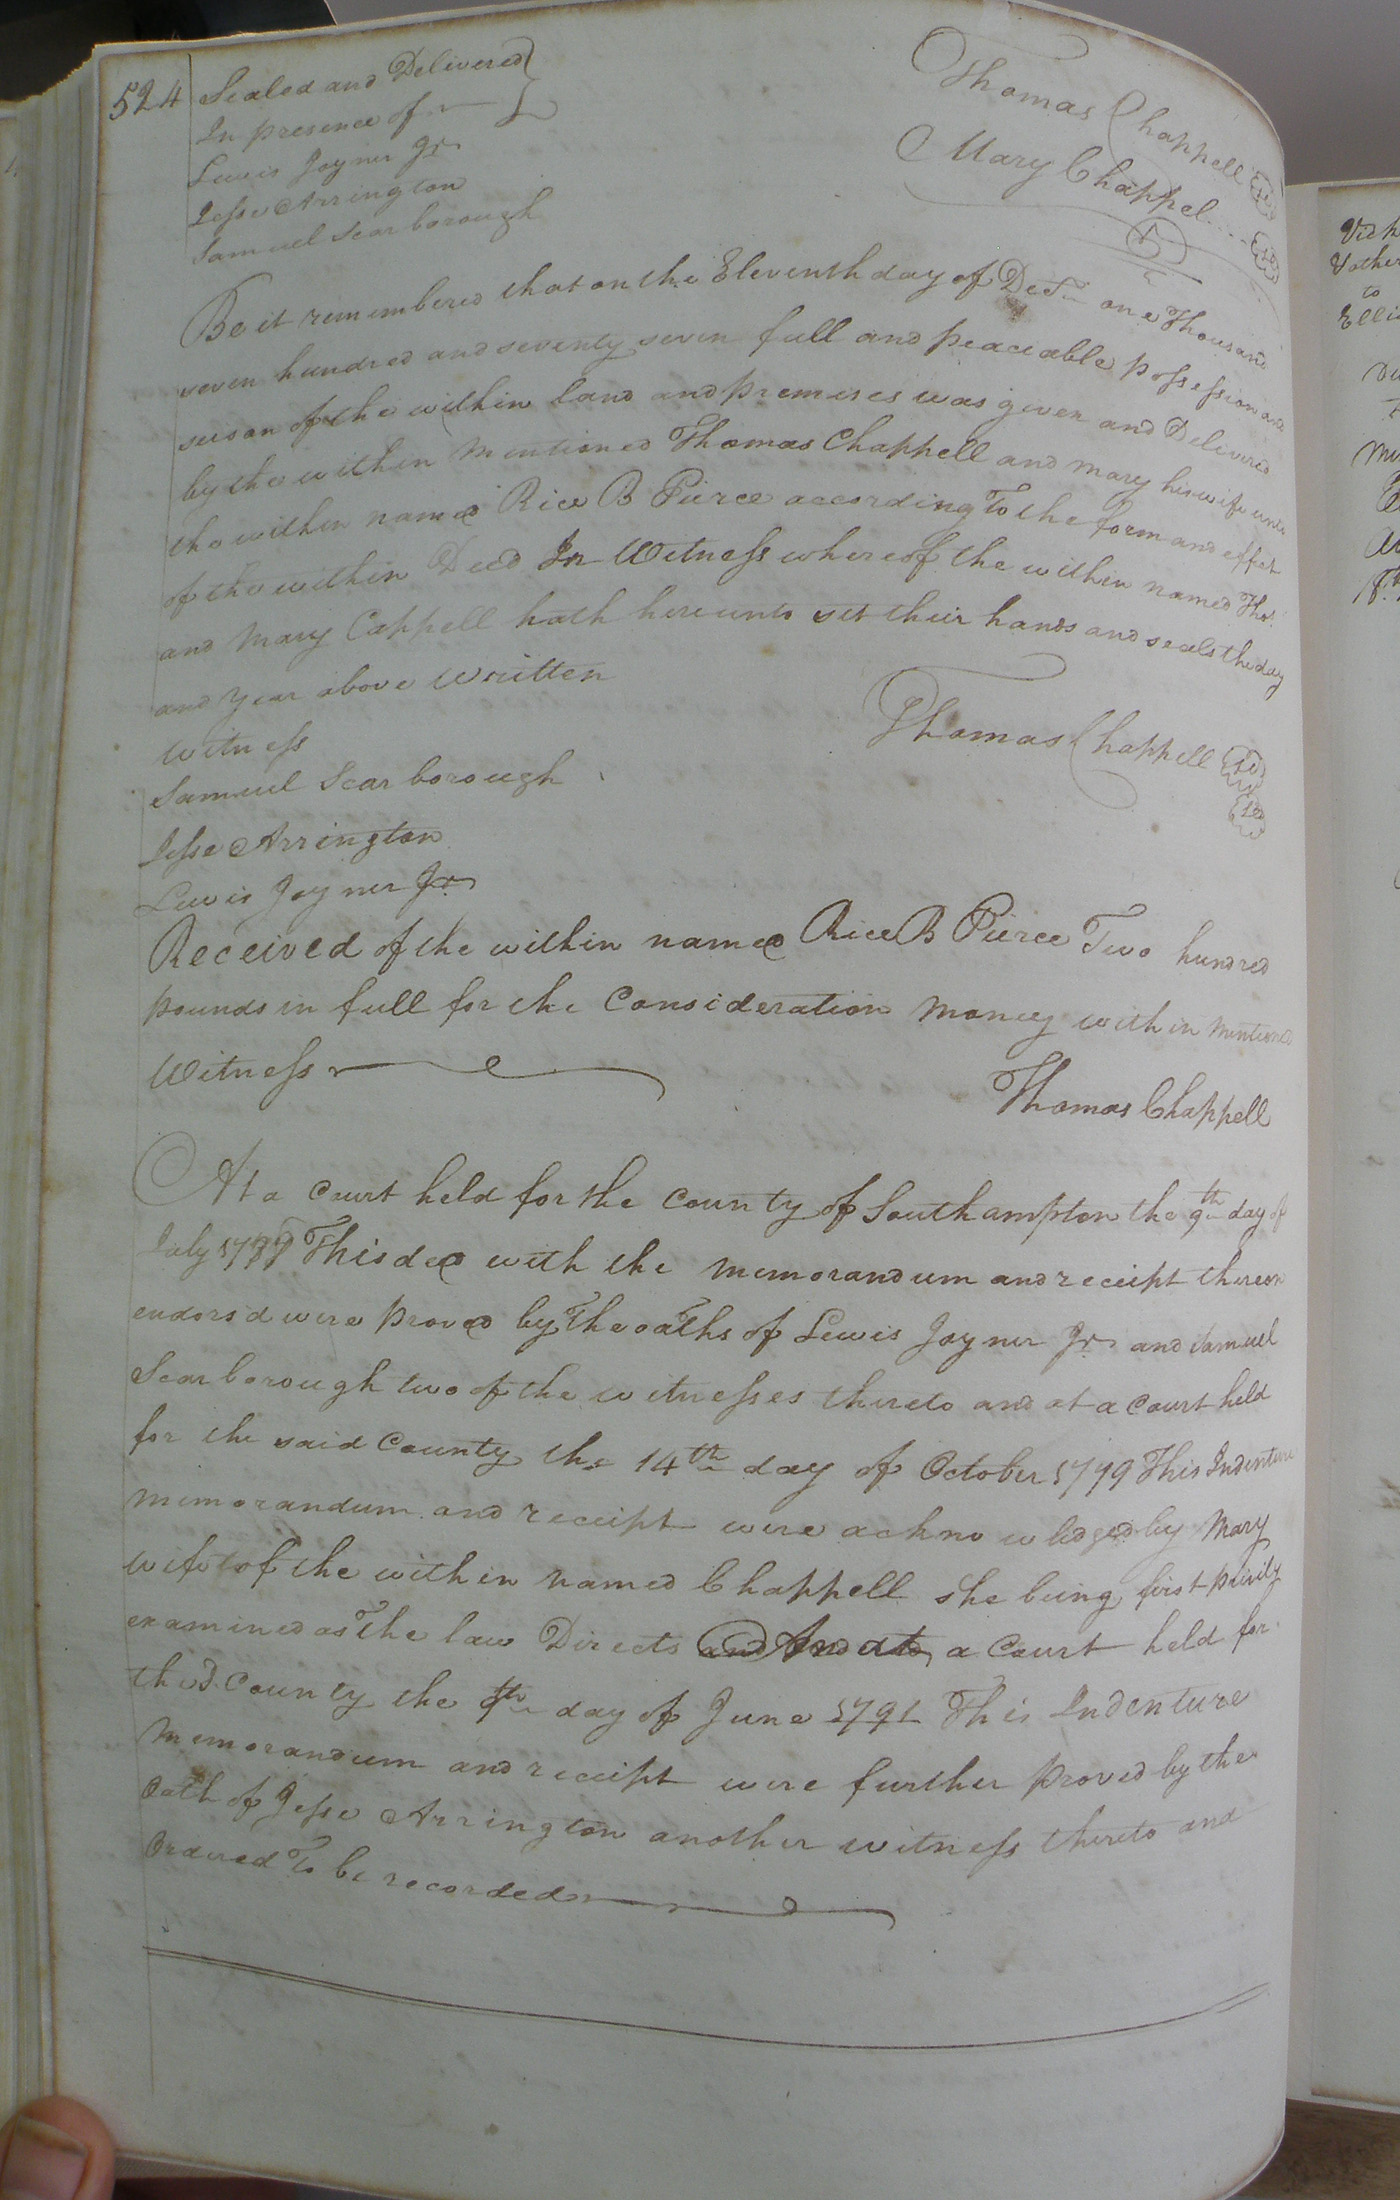 524
Sealed and Delivered
In presence of
Lewis Joyner Jr
Jesse Arrington
Samuel Scarborough
Thomas Chappell
Mary Chappel
Be it remembered that on the Eleventh day of Decr one Thousand
seven hundred and seventy seven full and peaceable possession and
seison of the within land and premises was given and Delivered
by the within mentioned Thomas Chappell and mary his wife unto
the within named Rice B Pierce according To the form and effect
of the within Deed In Witness whereof the within named Thos.
and Mary Cappell hath hereunto set their hands and seals the day
and year above Written
Witness
Samuel Scarborough
Jesse Arrington
Lewis Joyner Jr
Thomas Chappell
Received of the within named Rice B Pierce Two hundred
pounds in full for the Consideration money within mentioned
Witness
Thomas Chappell
At a Court held for the County of Southampton the 9th day of
July This deed with the memorandum and receipt thereon
endorsd were proved by The oaths of Lewis Joyner Jr and Samuel
Scarborough two of the witnesses thereto and at a Court held
for the said County the 14th day of October 1779 This Indenture
memorandum and receipt were acknowledged by Mary
wife of the within named Chappell she being first privily
examined as The law Directs And at a Court held for
the sd. County the 9th day of June 1791 This Indenture
memorandum and receipt were further proved by the
Oath of Jesse Arrington another witness thereto and
Ordered To be recorded
Vick
to